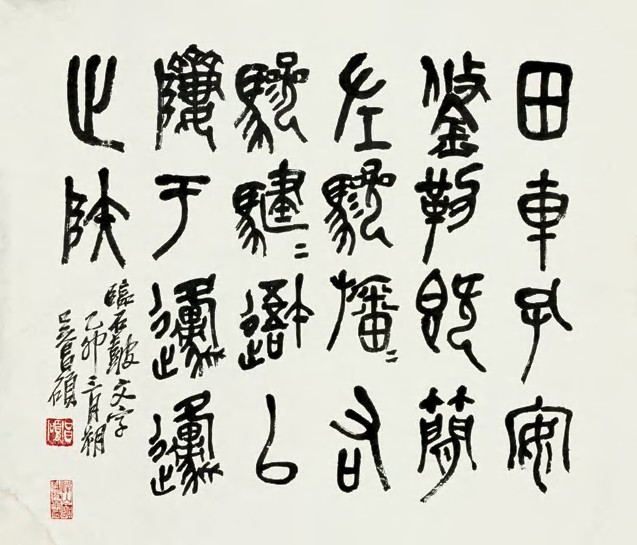 田車孔安
鋚勒既簡
左驂旛〻右
驂騝〻以
隮于邍邍
止陕
臨石鼓文字
乙卯三月朔
吳昌碩